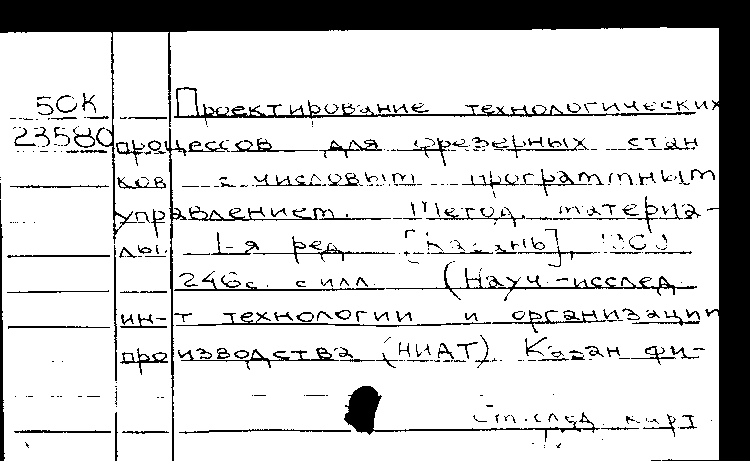 5СК Проектирование технологических
23580 процессов для фрезерных стан
ков с числовым программным
управлением. Метод. материа-
лы. 1-я ред. [Казань],
246с. с илл. (Науч.-исслед
ин-т технологии и организации
производства (НИАТ). Казан фи-
См. след карт